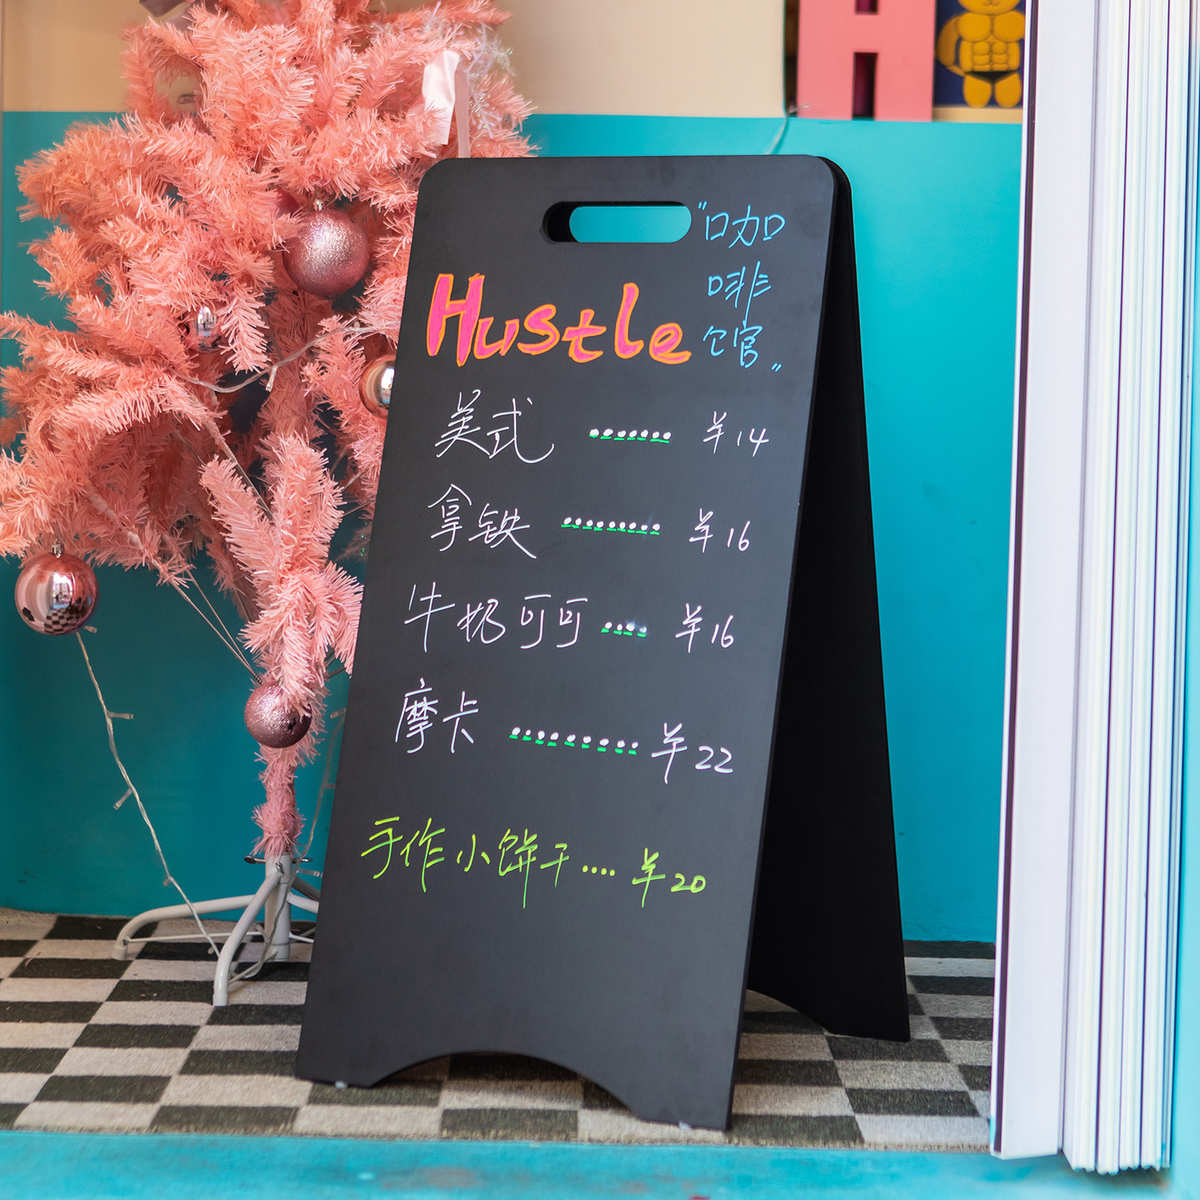 "咖
啡
馆"
Hustle
美式 ······· ¥14
拿铁 ········· ¥16
牛奶可可 ···· ¥16
摩卡 ········· ¥22
手作小饼干 ···· ¥20
H